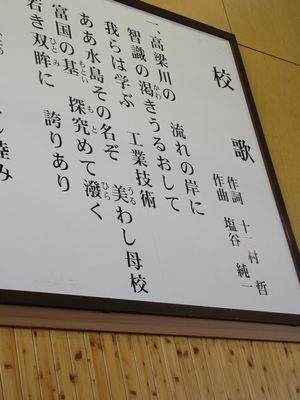 校歌
作詞 十一村 哲
作曲 塩谷 純一
一 高梁川の 流れの岸に
かわ
智識の渇きうるおして
我らは学ぶ 工業技術
うる
ああ水島その名ぞ 美わし母校
もとい もと ひら
富国の基 探究めて潑く
ひとみ
若き双眸に 誇りあり
し睦み